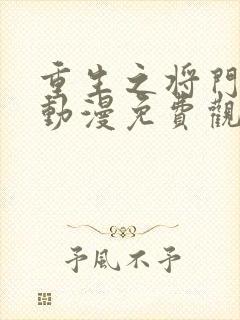 重生之将門
動漫免費觀
予風不予